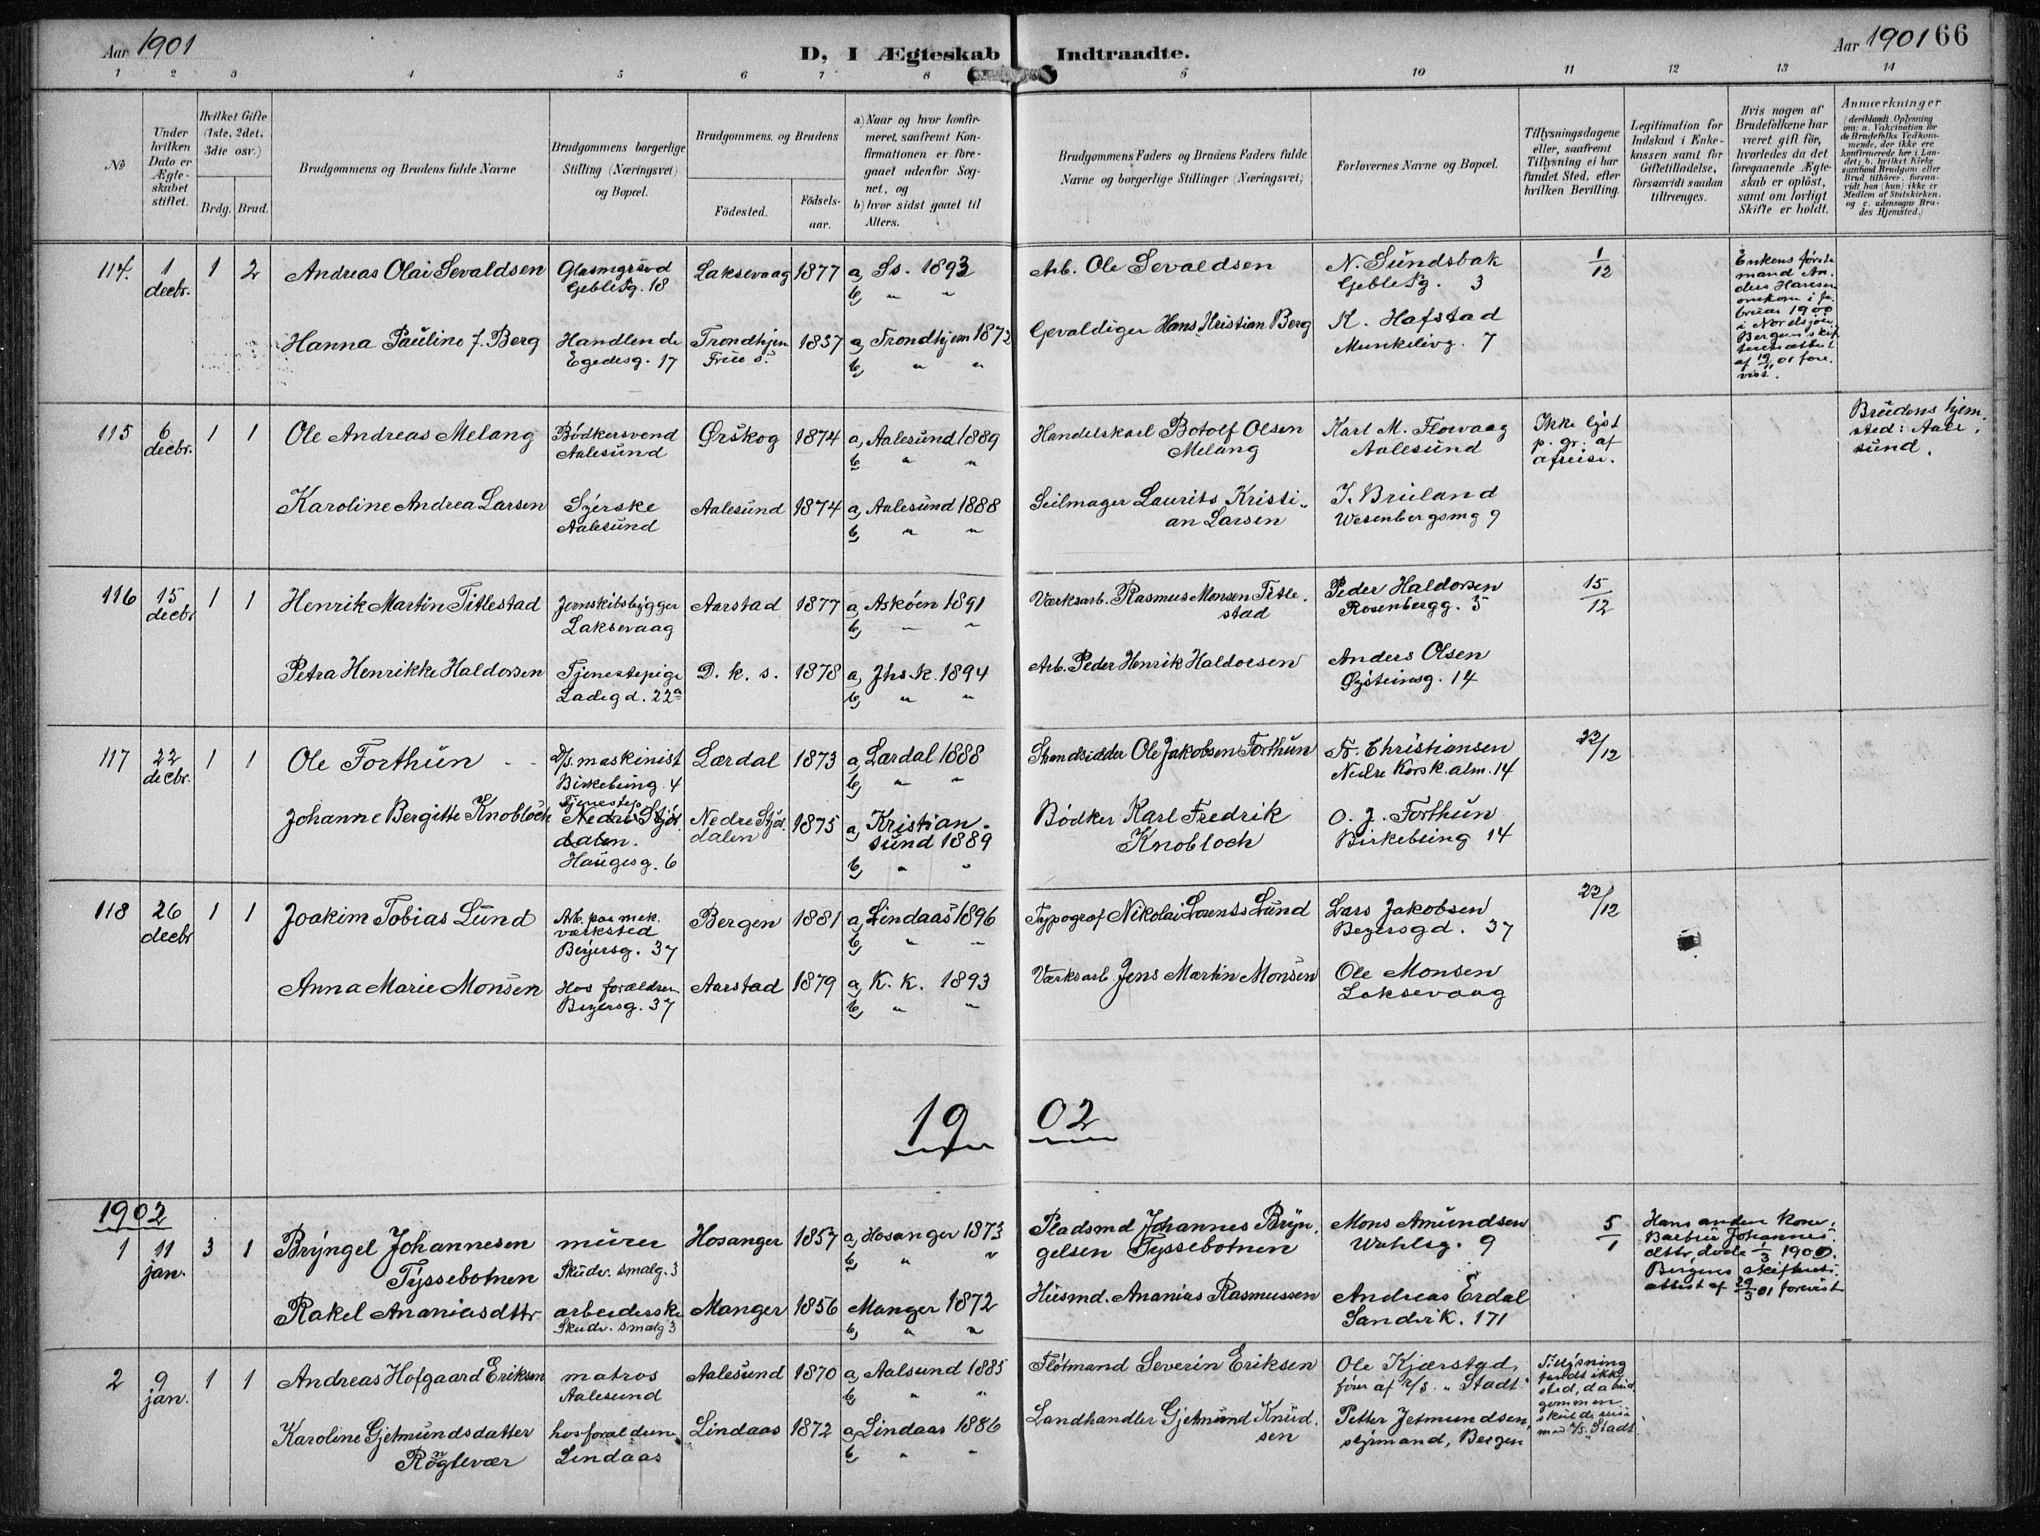 Aar 1901
D, I Ægteskab Indtraadte.
Aar 1901 66
1 2 3 4 5 6 7 8 9 10 11 12 13 14
No
Under hvilken Dato er Ægteskabet stiftet.
Hvilket Gifte (1ste, 2det, 3die osv.)
Brdg. Brud.
Brudgommens og Brudens fulde Navne
Brudgommens borgerlige Stilling (Næringsvei) og Bopæl.
Brudgommens og Brudens
Födested. Födsels-aar.
a) Naar og hvor konfirmeret, saafremt Konfirmationen er foregaaet udenfor Sognet, og
b) hvor sidst gaaet til Alters.
Brudgommens Faders og Brudens Faders fulde Navne og borgerlige Stillinger (Næringsvei)
Forlovernes Navne og Bopæl.
Tillysningsdagene eller, saafremt Tillysning ei har fundet Sted, efter hvilken Bevilling.
Legitimation for Indskud i Enkekassen samt for Giftetilladelse, forsaavidt saadan tiltrænges.
Hvis nogen af Brudefolkene har været gift för, hvorledes da det foregaaende Ægteskab er oplöst, samt om lovligt Skifte er holdt.
Anmærkninger
(deriblandt Oplysning om: a. Vakcination for de Brudefolks Vedkommende, der ikke ere konfirmerede her i Landet; b. hvilket Kirkesamfund Brudgom eller Brud tilhörer, forsaavidt han (hun) ikke er Medlem af Statskirken, og c. udensogns Brudes Hjemsted.)
114. 1 decbr. 1 2 Andreas Olai Sevaldsen Glasmgrsvd Geblesg. 18 Laksevaag 1877 a, Ss. 1893 b, " " Arb. Ole Sevaldsen N. Sundsbak Geblesg. 3 1/12
Enkens første mand Anders Hansen omkom i februar 1900 i Nordsjøen Bergens skifteretsattest af 19/11 01 forevist.
Hanna Pauline f. Berg Handlende Egedesg. 17 Trondhjem Frue s. 1857 a, Trondhjem 1872 b, " " Gevaldiger Hans Kristian Berg K. Hafstad Munkelvg. 7
115 6 decbr. 1 1 Ole Andreas Melang Bødkersvend Aalesund Ørskog 1874 a, Aalesund 1889 b, " " Handelskarl Botolf Olsen Melang Karl M. Flovaag Aalesund Ikke lyst p. gr. af afreise.
Brudens hjemsted: Aalesund.
Karoline Andrea Larsen Syerske Aalesund Aalesund 1874 a, Aalesund 1888 b, " " Seilmager Laurits Kristian Larsen J. Bruland Wesenbergsmg 9
116 15 decbr 1 1 Henrik Martin Titlestad Jernskibsbygger Laksevaag Aarstad 1877 a, Askøen 1891 b, " " Værksarb. Rasmus Monsen Titlestad Peder Haldorsen Rosenbergg. 5 15/12
Petra Henrikke Haldorsen Tjenestepige Ladegd. 22a D. k. s. 1878 a, Jhs k. 1894 b, " " Arb. Peder Henrik Haldorsen Anders Olsen Øysteinsg. 14
117 22 decbr. 1 1 Ole Forthun D/s. maskinist Birkebeing. 4 Lærdal 1873 a, Lærdal 1888 b, " " Strandsidder Ole Jakobsen Forthun Fr. Christiansen Nedre Korsk.alm. 14 22/12
Johanne Bergitte Knobloch Tjenestep. Nedre Stjördalen. Haugesg. 6 Nedre Stjördalen 1875 a, Kristiansund 1889 b, " " Bødker Karl Fredrik Knobloch O. J. Forthun Birkebeing 14
118 26 decbr 1 1 Joakim Tobias Lund Arb. paa mek. værksted Beyersg. 37 Bergen 1881 a, Lindaas 1896 b, " " Typograf Nikolai Lorents Lund Lars Jakobsen Beyersgd. 37 22/12
Anna Marie Monsen Hos forældren Beyersg. 37 Aarstad 1879 a, K. k. 1893 b, " " Værksarb. Jens Martin Monsen Ole Monsen Laksevaag
1902
1902
1 11 jan. 3 1 Bryngel Johannesen Tyssebotnen murer Skudv. smalg. 3 Hosanger 1857 a, Hosanger 1873 b, " " Pladsmd Johannes Bryngelsen Tyssebotnen Mons Amundsen Wahlsg. 9 5/1
Hans anden kone, Barbru Johannesdttr, døde 1/3 1900. Bergens skifterets attest af 29/3 01 forevist
Rakel Ananiasdttr. arbeiderske Skudv. smalg 3 Manger 1856 Manger 1872 b, " " Husmd. Ananias Rasmussen Andreas Erdal Sandvik. 171
2 9 jan. 1 1 Andreas Hofgaard Eriksen matros Aalesund Aalesund 1870 a, Aalsund 1885 b, " " Flötmand Severin Eriksen Ole Kjærstad, fører af D/S. "Stadt" Tillysning fandt ikke sted, da brudgommen skulde reise med D/S. "Stadt"
Karoline Gjetmundsdatter Røgnlevær hos forældrene Lindaas Lindaas 1872 a, Lindaas 1886 b, " " Landhandler Gjetmund Knudsen Petter Jetmundsen, styrmand, Bergen